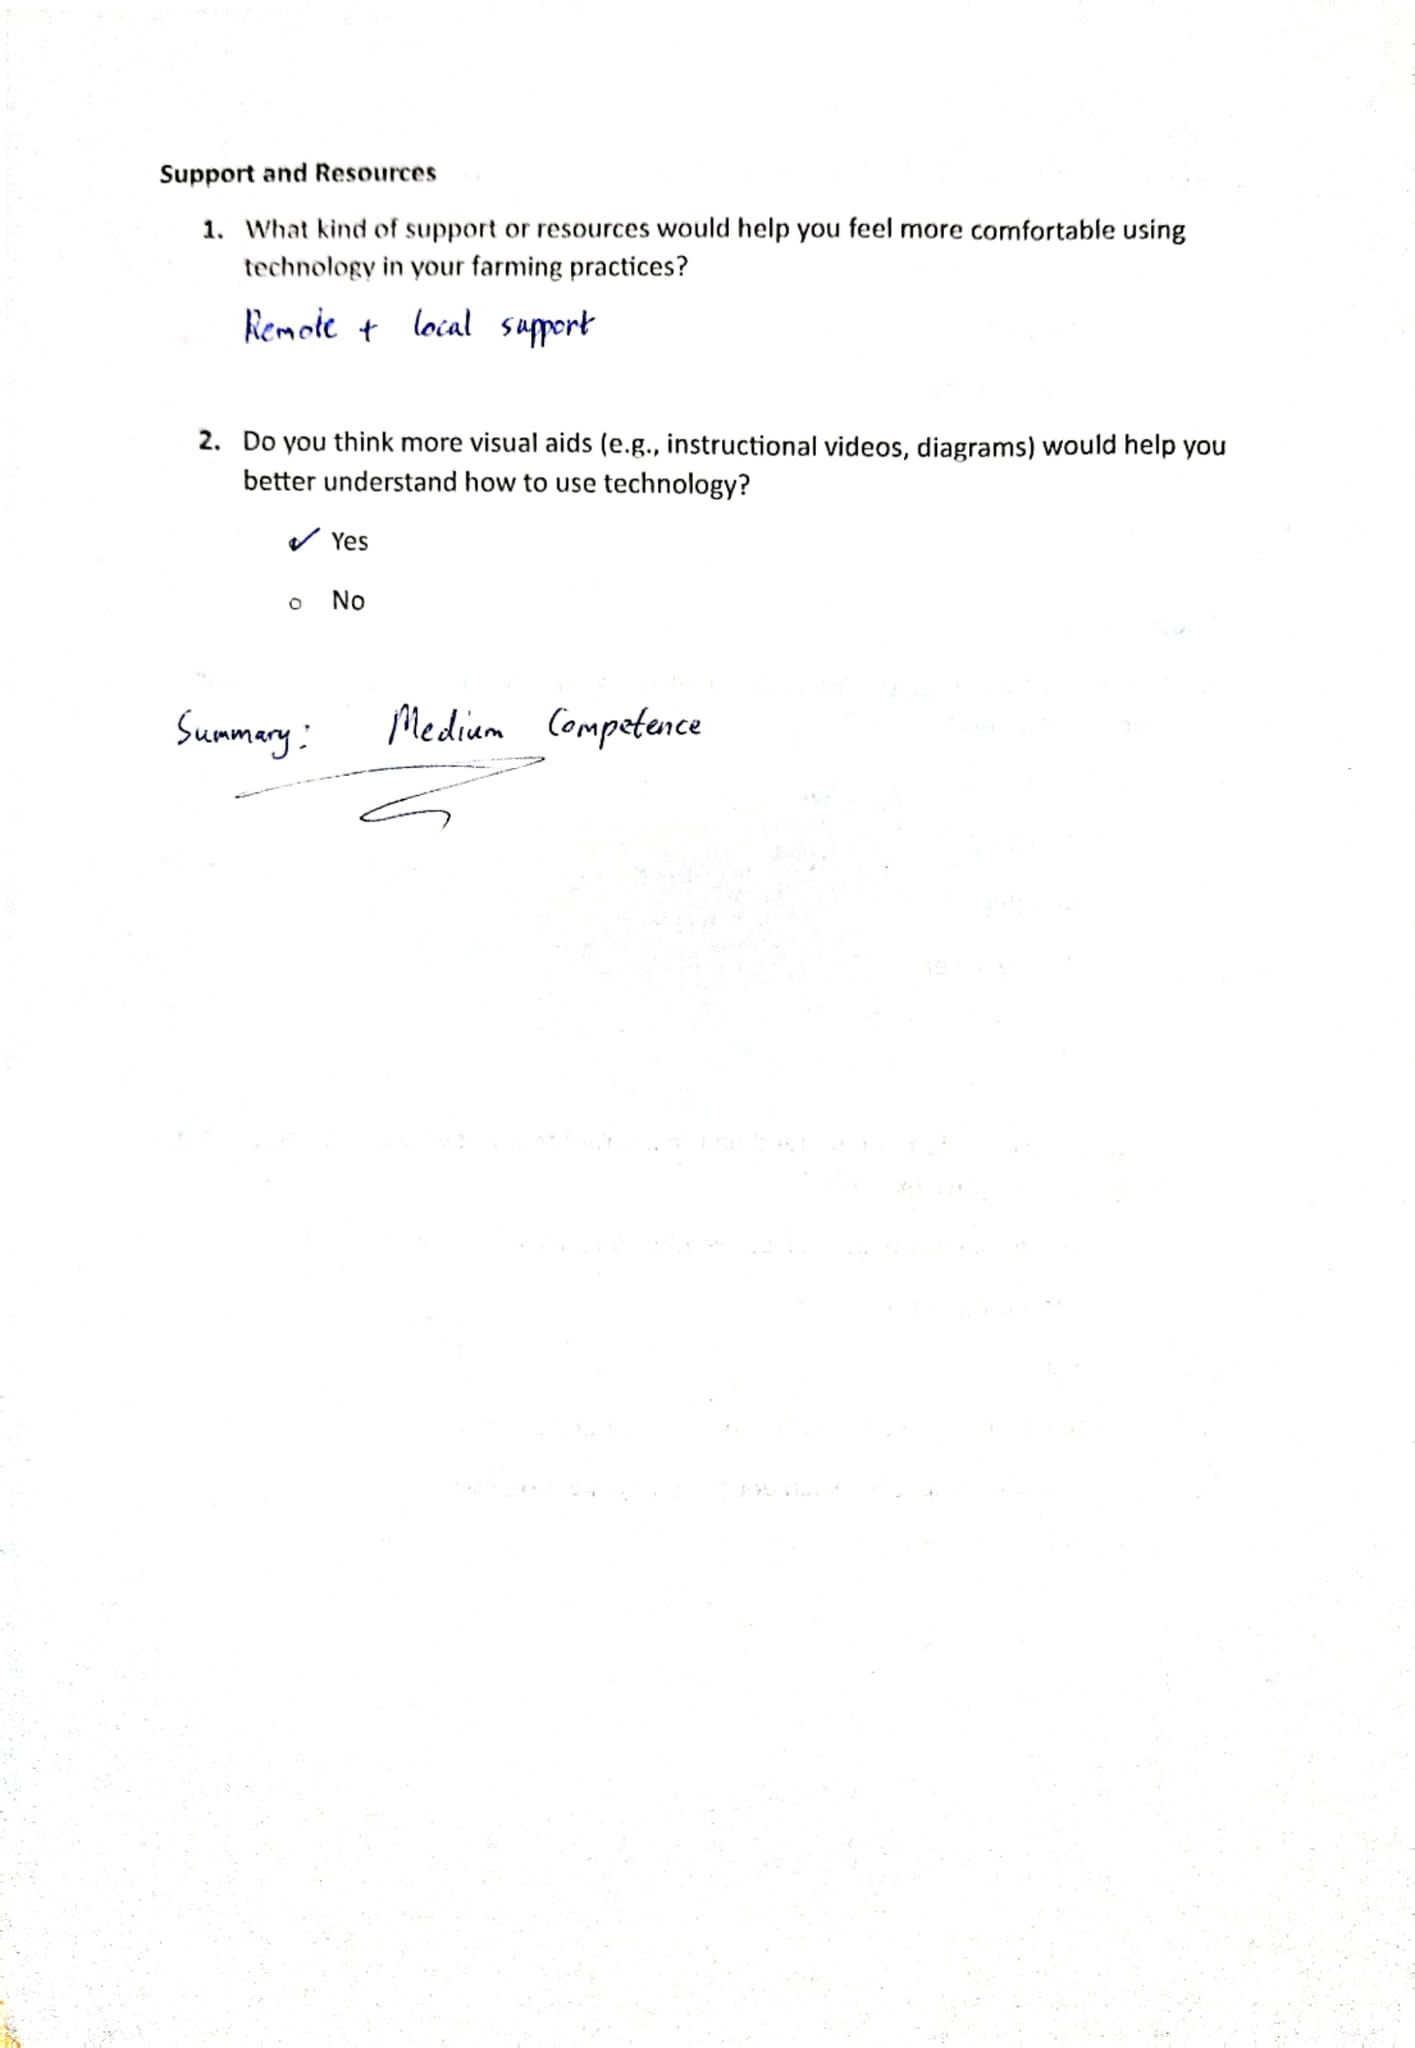 Support and Resources
1. What kind of support or resources would help you feel more comfortable using
technology in your farming practices?
Remote + local support
2. Do you think more visual aids (e.g., instructional videos, diagrams) would help you
better understand how to use technology?
✓ Yes
o No
Summary: Medium Competence